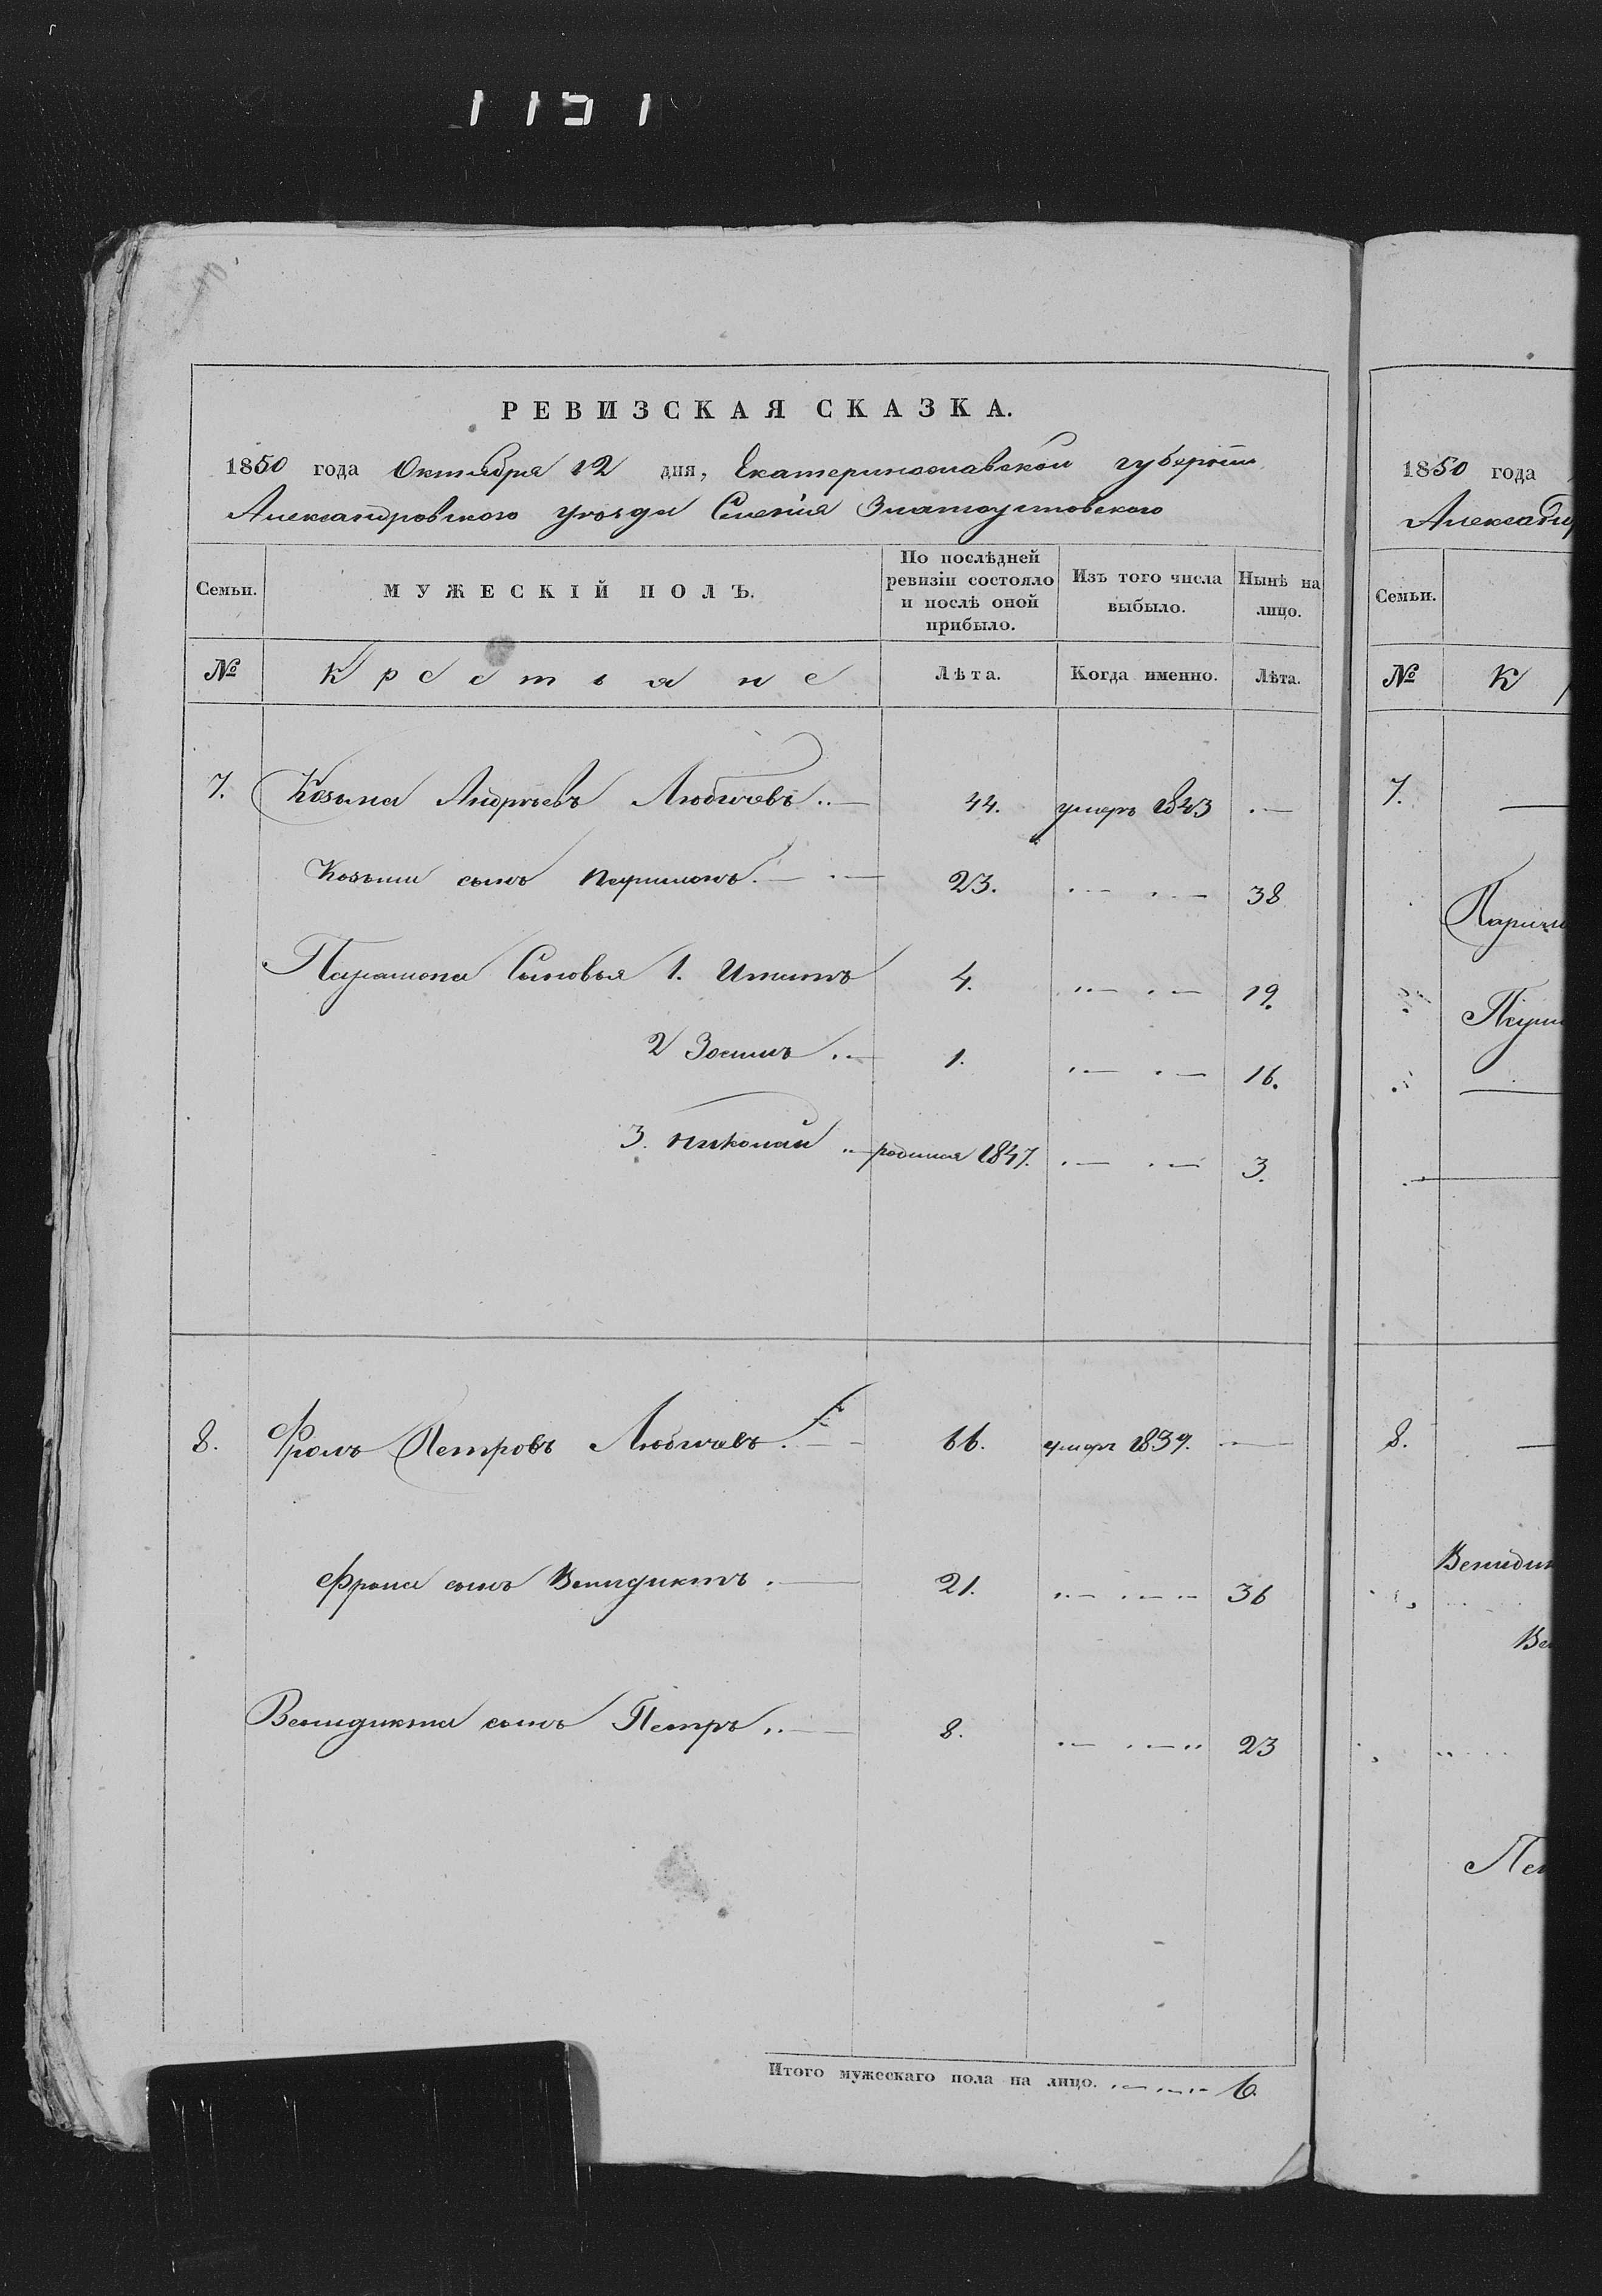 1151
РЕВИЗСКАЯ СКАЗКА.
1850 года Октября 12 дня, Екатеринославской губерніи
Александровского уѣзда Селенія Златоустовского
Семьи. МУЖЕСКІЙ ПОЛЪ. По послѣдней ревизіи состояло и послѣ оной прибыло. Изъ того числа выбыло. Нынѣ на лицо.
№ Крестьяне Лѣта. Когда именно. Лѣта.
7. Козьма Андрѣевъ Любичевъ 44. умеръ 1843
Козьми сынъ Парамонъ. 23. 38
Парамона Сыновья 1. Ипатъ 4. 19.
2 Зосимъ 1. 16.
3. Николай родился 1847. 3.
8. Фролъ Петровъ Любичевъ. 66. умеръ 1839.
Фрола сынъ Венидиктъ. 21. 36
Венидикта сынъ Петръ 8. 23
Итого мужескаго пола на лицо. 6.
1850 года
Александр
Семьи.
№ К
7.
Парам
Парам
8.
Венидик
Ве
Пе